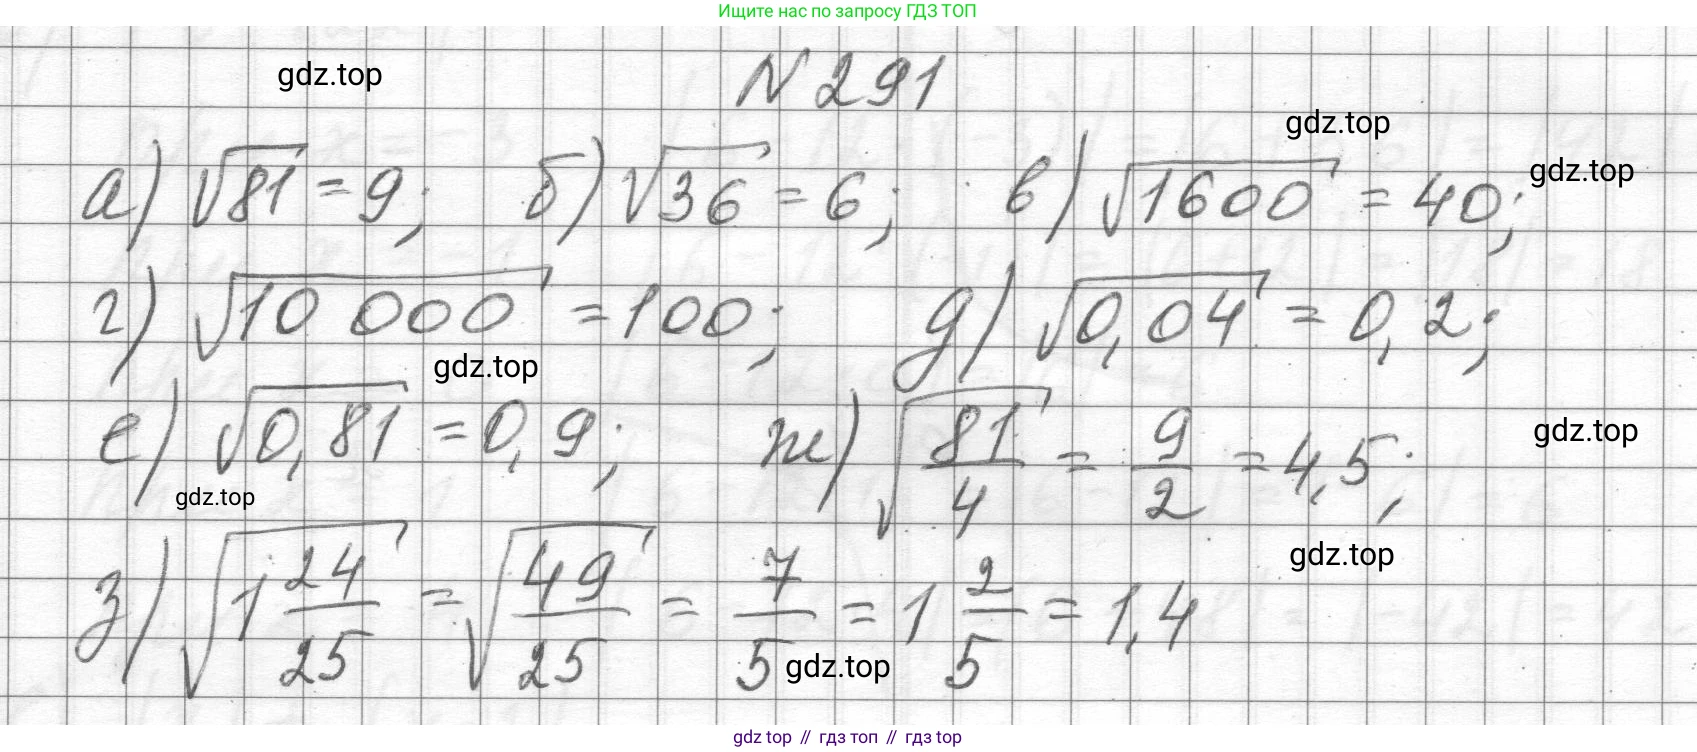 Ищите нас по запросу ГДЗ ТОП
gdz.top
N 291
gdz.top
а) √81 = 9; б) √36 = 6; в) √1600 = 40;
gdz.top
г) √10 000 = 100; д) √0,04 = 0,2;
gdz.top
е) √0,81 = 0,9; ж) √81/4 = 9/2 = 4,5;
gdz.top
gdz.top
gdz.top
з) √1 24/25 = √49/25 = 7/5 = 1 2/5 = 1,4
gdz.top
gdz top // гдз топ // гдз top